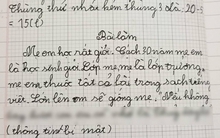 Thùng thứ nhất kém thùng 3 là: 20-5
= 15(l)
Bài làm
Mẹ em học rất giỏi. Cách 30 năm mẹ em
là học sinh giỏi Lớp mẹ, mẹ là lớp trưởng,
mẹ em thuộc tất cả bài trong sách tiếng
việt. Lớn lên em sẽ giống mẹ, Nếu không
(thông tin bí mật)